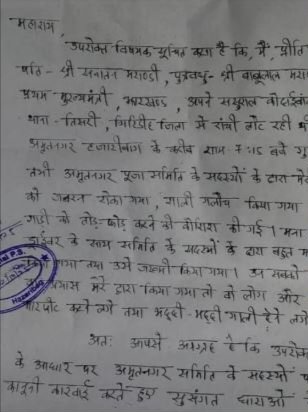 महाशय,
उपरोक्त विषयक सूचित करना है कि, मैं, प्रीति
पति - श्री सनातन मराण्डी, पुत्रवधु - श्री बाबूलाल मरा
प्रथम मुख्यमंत्री, झारखण्ड, अपने ससुराल कोदाईबाँ
थाना - तिसरी, गिरिडीह जिला से रांची लौट रही थी
अमृतनगर हजारीबाग के करीब शाम 7:15 बजे गु
तभी अमृतनगर पूजा समिति के सदस्यों के द्वारा मे
को जबरन रोका गया, गाली गलौच किया गया
गाड़ी को तोड़-फोड़ करने की कोशिश की गई। मना
ड्राईवर के साथ समिति के सदस्यों के द्वारा बहुत
गया तथा उसे जख्मी किया गया। उन सबको
प्रयास मेरे द्वारा किया गया तो वो लोग और
मारपीट करने लगे तथा भद्दी-भद्दी गाली देने लगे
अतः आपसे आग्रह है कि उपरोक्त
के आधार पर अमृतनगर समिति के सदस्यों प
कानूनी कारवाई करते हुए सुसंगत धाराओं
P.S.
Hazaribag